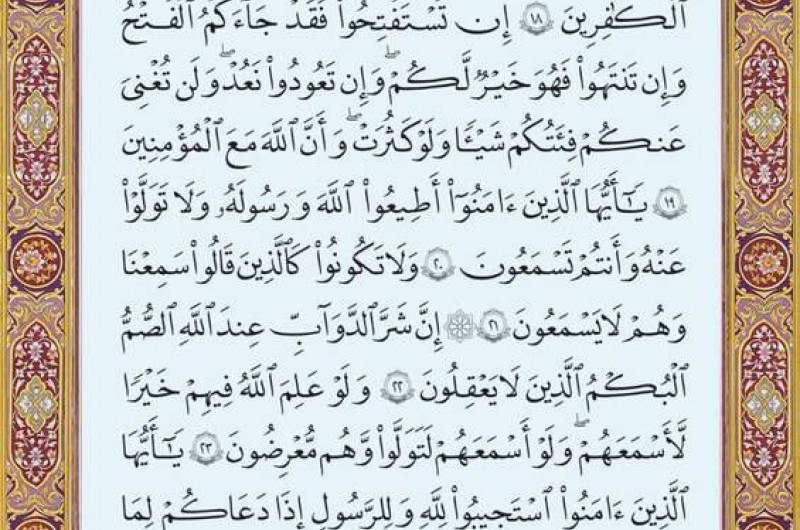 ٱلْكَٰفِرِينَ ١٨ إِن تَسْتَفْتِحُوا۟ فَقَدْ جَآءَكُمُ ٱلْفَتْحُ
وَإِن تَنتَهُوا۟ فَهُوَ خَيْرٌ لَّكُمْ ۖ وَإِن تَعُودُوا۟ نَعُدْ وَلَن تُغْنِىَ
عَنكُمْ فِئَتُكُمْ شَيْـًٔا وَلَوْ كَثُرَتْ ۖ وَأَنَّ ٱللَّهَ مَعَ ٱلْمُؤْمِنِينَ
١٩ يَٰٓأَيُّهَا ٱلَّذِينَ ءَامَنُوٓا۟ أَطِيعُوا۟ ٱللَّهَ وَرَسُولَهُۥ وَلَا تَوَلَّوْا۟
عَنْهُ وَأَنتُمْ تَسْمَعُونَ ٢٠ وَلَا تَكُونُوا۟ كَٱلَّذِينَ قَالُوا۟ سَمِعْنَا
وَهُمْ لَا يَسْمَعُونَ ٢١ ۞ إِنَّ شَرَّ ٱلدَّوَآبِّ عِندَ ٱللَّهِ ٱلصُّمُّ
ٱلْبُكْمُ ٱلَّذِينَ لَا يَعْقِلُونَ ٢٢ وَلَوْ عَلِمَ ٱللَّهُ فِيهِمْ خَيْرًا
لَّأَسْمَعَهُمْ ۖ وَلَوْ أَسْمَعَهُمْ لَتَوَلَّوا۟ وَّهُم مُّعْرِضُونَ ٢٣ يَٰٓأَيُّهَا
ٱلَّذِينَ ءَامَنُوا۟ ٱسْتَجِيبُوا۟ لِلَّهِ وَلِلرَّسُولِ إِذَا دَعَاكُمْ لِمَا